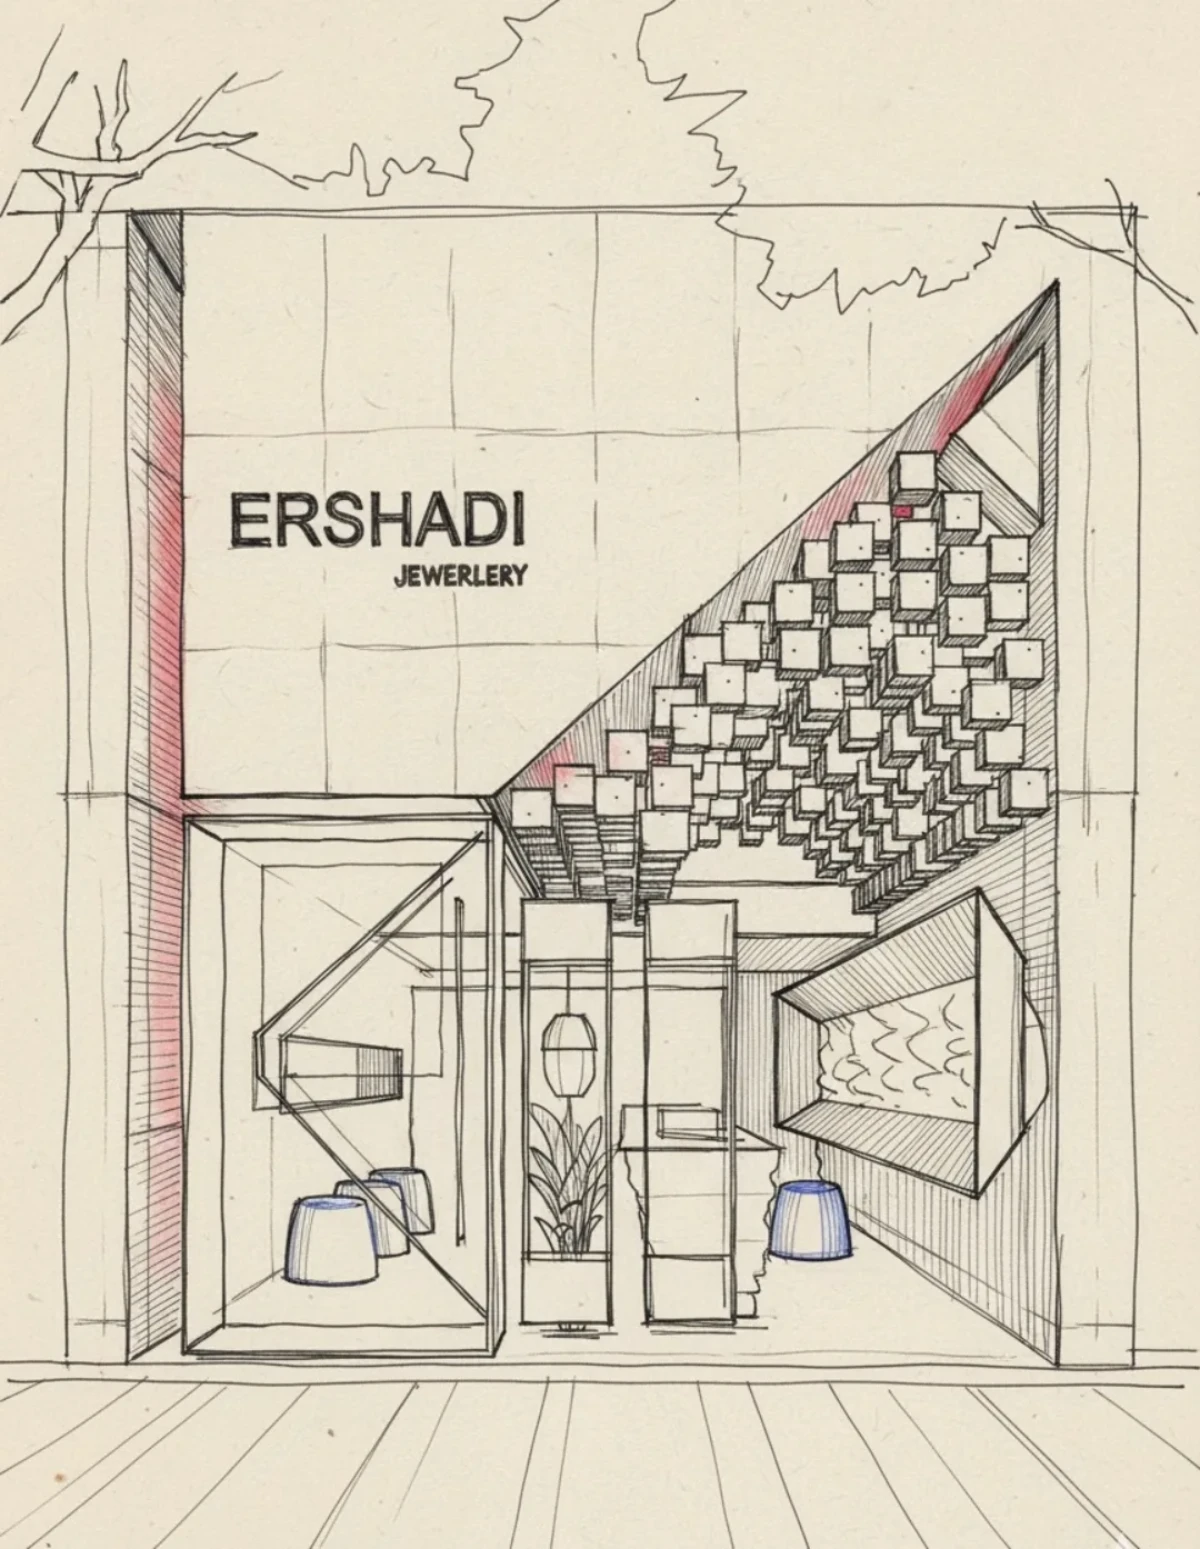 ERSHADI
JEWERLERY